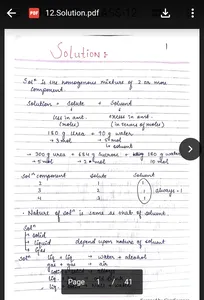 12.Solution.pdf
1
Solutions
Solⁿ Is the homogenous mixture of 2 or more
component.
Solution = Solute + Solvent
(less in amt. Excess in amt.
(moles) (in terms of moles)
180 g urea + 90 g water
→ 3 mol → 5 mol
↳ solvent
→ 300 g urea + 684 g sucrose + 180 g water
→ 5 mol → 2 mol 10 mol
Solⁿ component Solute Solvent
2 1 1
3 2 1 always = 1
4 3 1
• Nature of solⁿ is same as that of solvent.
Solⁿ
→ solid
→ liquid depend upon nature of solvent
→ Gas
Solⁿ liq. liq. → water + alcohol
gas + gas → air
Page 1 / 41